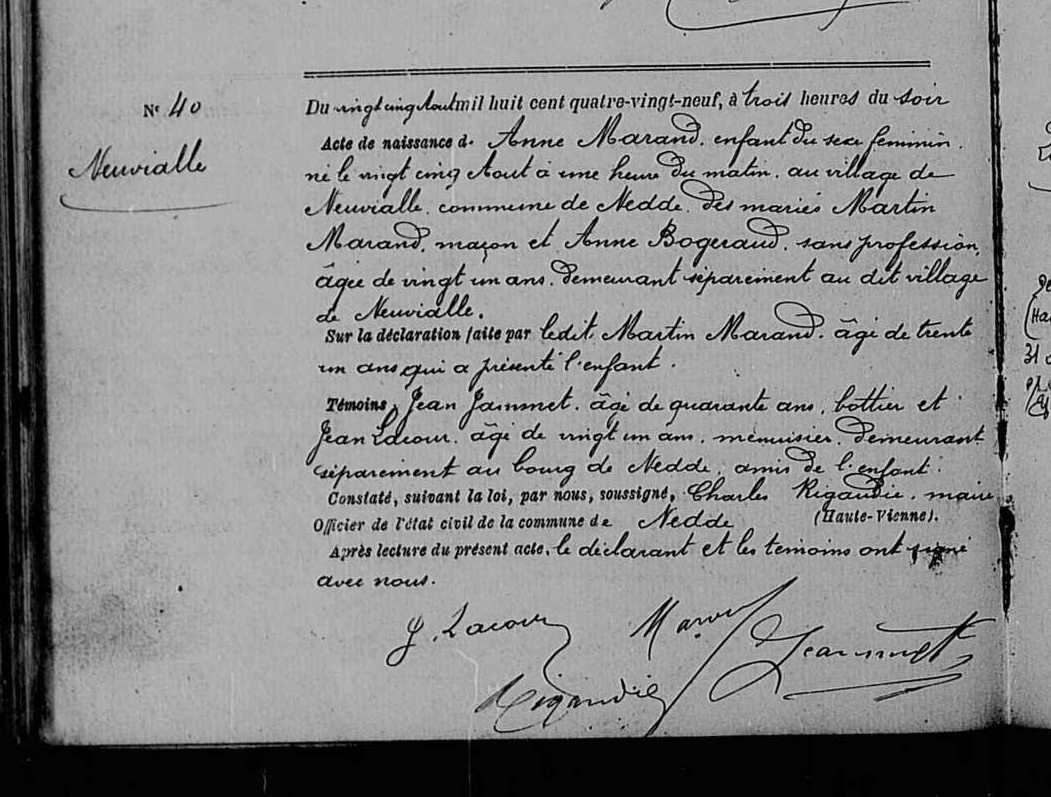 Nº 40
Neuvialle
Du vingt cinq Aout mil huit cent quatre-vingt-neuf, à trois heures du soir
Acte de naissance de Anne Marand. enfant du sexe féminin.
né le vingt cinq Aout à une heure du matin. au village de
Neuvialle. commune de Nedde. des mariés Martin
Marand. maçon et Anne Bogeraud. sans profession,
âgée de vingt un ans. demeurant séparement au dit village
de Neuvialle.
Sur la déclaration faite par ledit Martin Marand. âgé de trente
un ans qui a présenté l'enfant.
Témoins, Jean Jammet. âgé de quarante ans, bottier et
Jean Lacour. âgé de vingt un ans. menuisier. demeurant
séparement au bourg de Nedde. amis de l'enfant.
Constaté, suivant la loi, par nous, soussigné, Charles Rigaudie. maire
Officier de l'état civil de la commune de Nedde (Haute-Vienne).
Après lecture du présent acte, le déclarant et les témoins ont signé
avec nous.
J. Lacour
Rigaudie
31